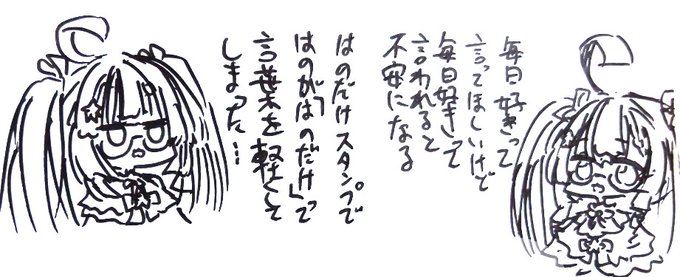 毎日好きって
言ってほしいけど
毎日好きって
言われると
不安になる
はのだけスタンプで
はのが「はのだけ」って
言葉を軽くして
しまった…